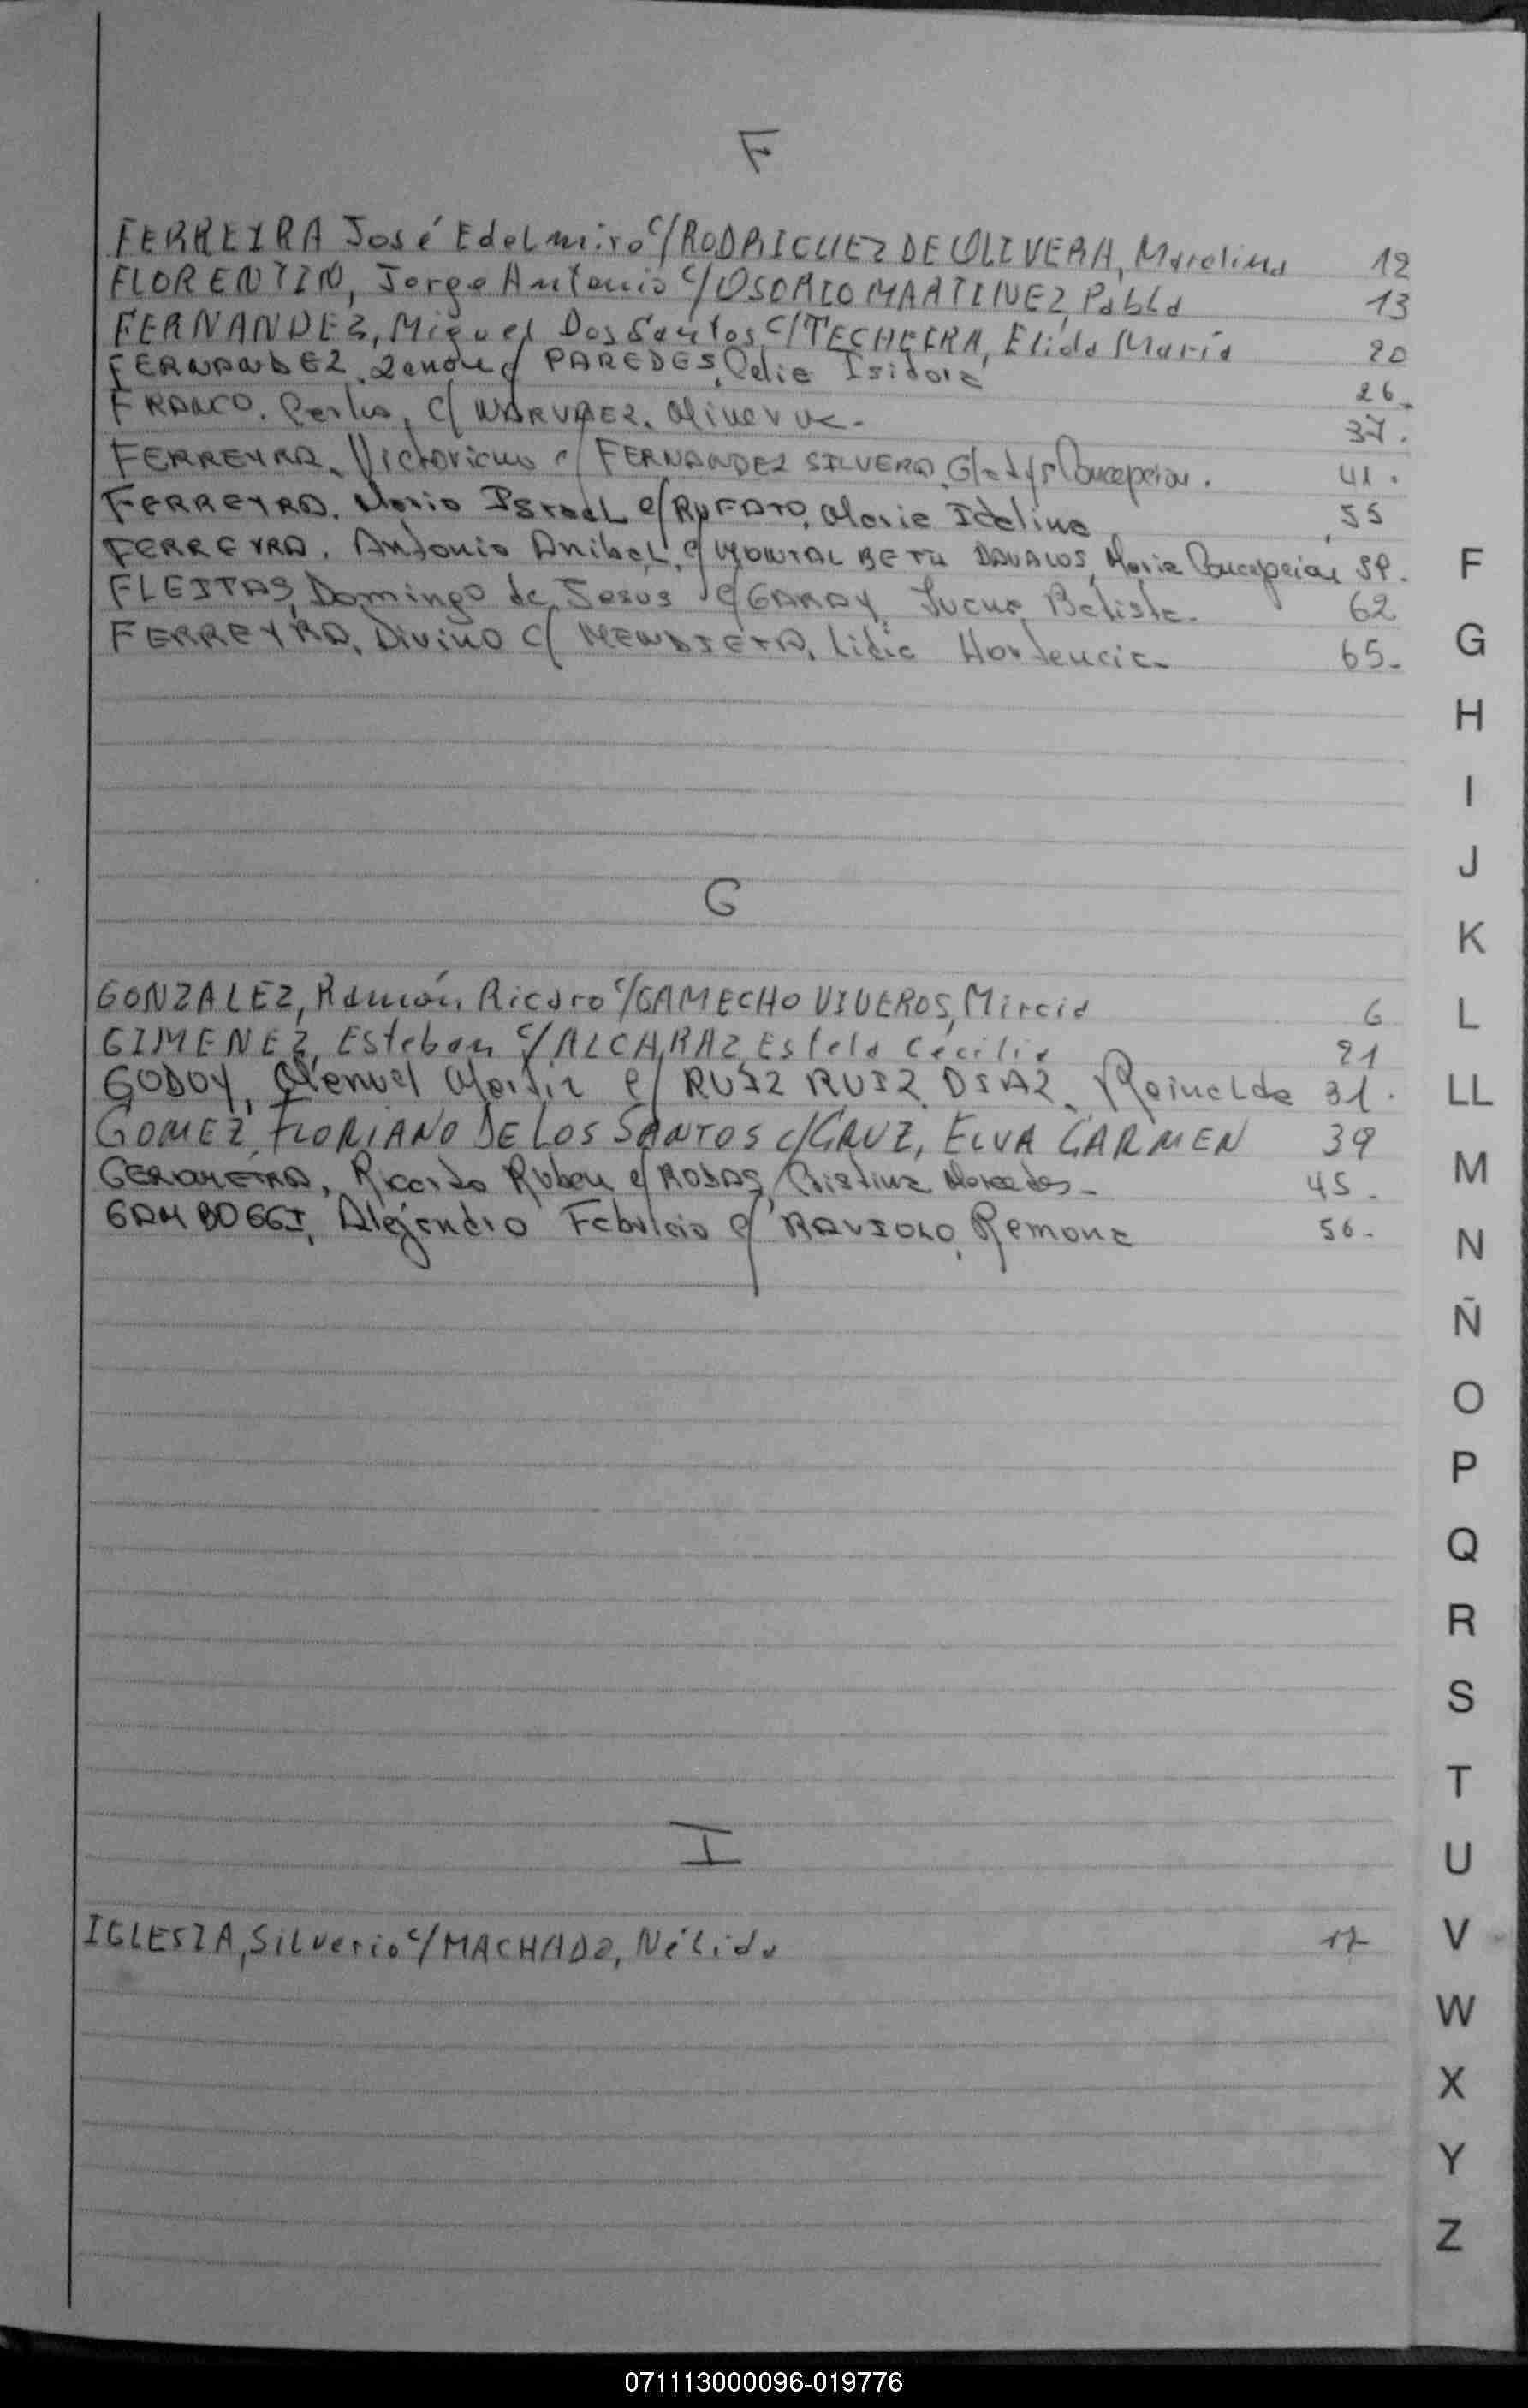 F
FERREIRA José Edelmiro c/ RODRIGUEZ DE OLIVERA, Marelina 12
FLORENTIN, Jorge Antonio c/ OSORIO MARTINEZ, Pabla 13
FERNANDEZ, Miguel Dos Santos c/ TECHEIRA, Elida María 20
FERNANDEZ, Zenon c/ PAREDES, Celia Isidora 26.
FRANCO, Carlos, c/ NARVAEZ, Minerva. 37.
FERREYRA, Victoriano c/ FERNANDEZ SILVERA, Gladys Concepcion. 41.
FERREYRA, Mario Israel c/ RUFATO, Maria Idelina 55
FERREYRA, Antonio Anibal, c/ MONTALBETTI DAVALOS, Maria Concepcion 59.
FLEITAS, Domingo de Jesus c/ GARAY, Juana Batista. 62
FERREYRA, Divino c/ MENDIETA, Lidia Hortencia. 65.
G
GONZALEZ, Ramón Ricaro c/ GAMECHO VIVEROS, Mircia 6
GIMENEZ, Esteban c/ ALCARAZ, Estela Cecilia 21
GODOY, Manuel Martin c/ RUIZ RUIZ DIAZ, Reinalda 31.
GOMEZ, FLORIANO DE LOS SANTOS c/ CRUZ, ELVA CARMEN 39
Ricardo Ruben c/ RODAS, Cristina Mercedes. 45.
GAMBOGGI, Alejandro Fabricio c/ RAVIOLO, Ramona 56.
I
IGLESIA, Silverio c/ MACHADO, Nélida 17
F
G
H
I
J
K
L
LL
M
N
Ñ
O
P
Q
R
S
T
U
V
W
X
Y
Z
071113000096-019776